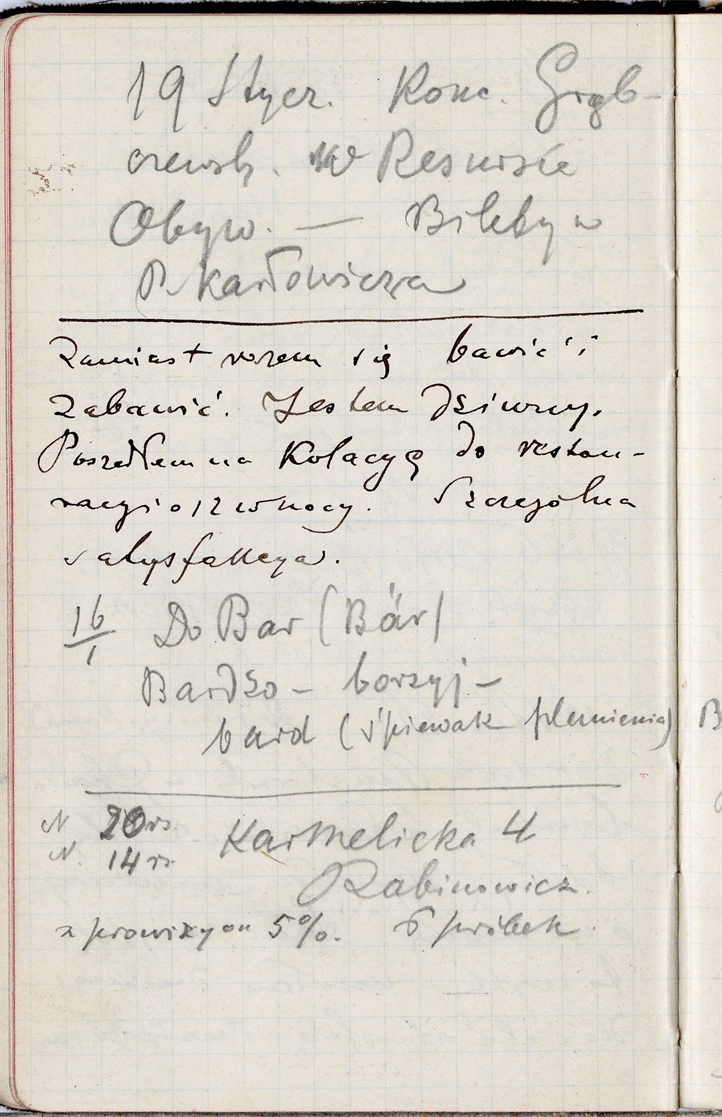 19 Stycz. Konc. Grąb-
czewsk. W Resursie
Obyw. — Bilety u
P. Karłowicza
Zamiast razem się bawić i
zabawić. Jestem dziwny.
Poszedłem na Kolacyę do restau-
racyi o 12 w nocy. Szczególna
satysfakcya.
16/1 Do Bar (Bär)
Bardzo – borzyj –
bard (śpiewak plemienia)
N 20 rs. Karmelicka 4
N. 14 rs. Rabinowicz.
z prowizyą 5%. 6 próbek.
B